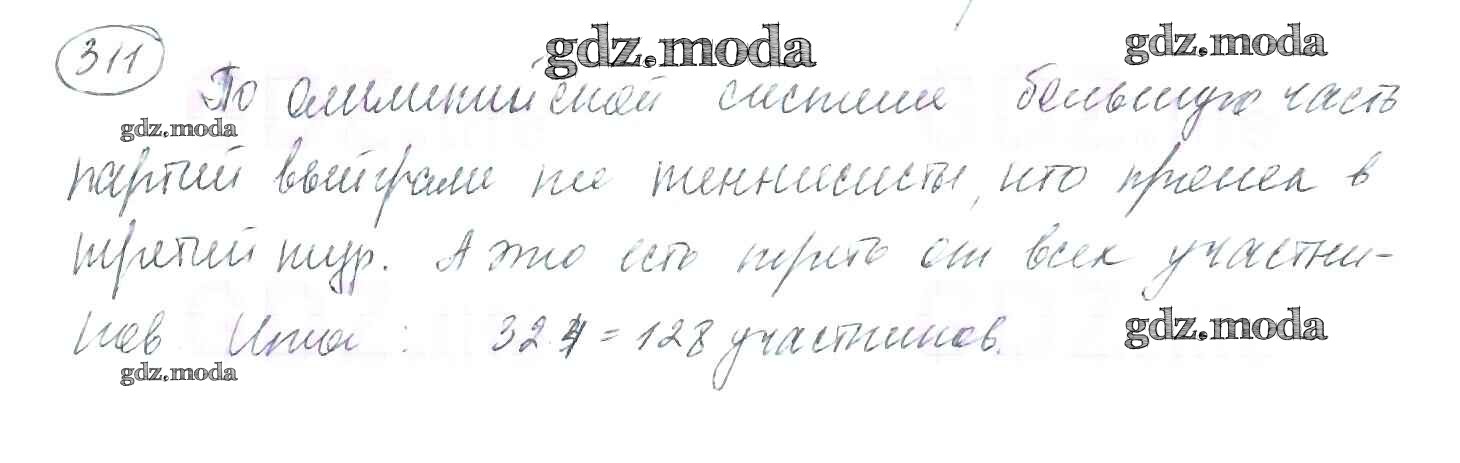 311
gdz.moda
gdz.moda
По олимпийской системе большую часть
gdz.moda
партий выйграли те теннисисты, кто прошел в
третий тур. А это есть треть от всех участни-
ков. Итого: 32·4=128 участников.
gdz.moda
gdz.moda